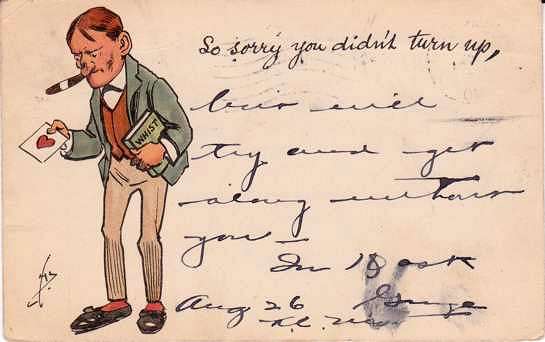 So sorry you didn't turn up,
but will
try and get
along without
you —
WHIST
Aug 26